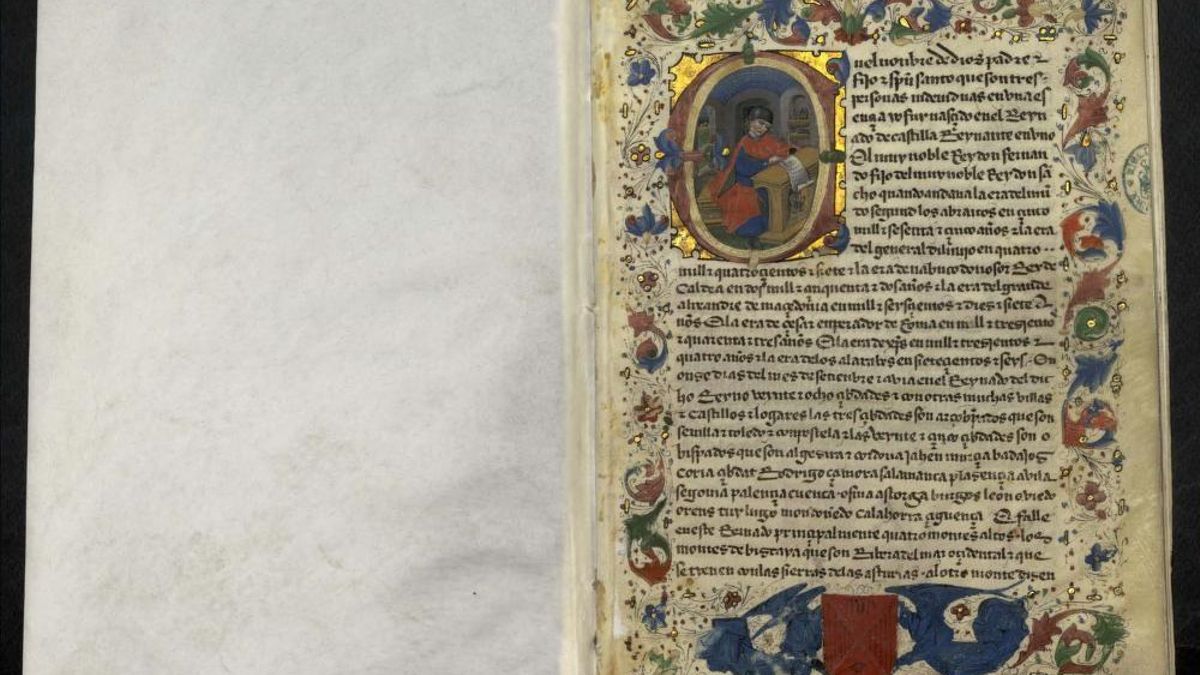 nel nonbre de dios padre ⁊
fijo ⁊ spũ santo que son tres
personas indiuiduas en vna es
ençia yo fui nasçido en el Reyn
ado de castilla Reynante en vno
El muy noble Rey don fernan
do fijo del muy noble Rey don sã
cho quando andaua la era del mũ
do segund los abraicos en çinco
mill ⁊ sesenta ⁊ çinco años ⁊ la era
del general diluuio en quatro
mill ⁊ quatroçientos ⁊ siete ⁊ la era de nabuco donosor Rey de
Caldea en dos mill ⁊ çinquenta ⁊ dos años ⁊ la era del grande
alixandre de maçedonia en mill ⁊ seysçientos ⁊ dies ⁊ siete a
ños E la era de çesar enperador de Roma en mill ⁊ tresientos
⁊ quarenta ⁊ tres años E la era de xp̃s en mill ⁊ tresientos ⁊
quatro años ⁊ la era de los alarabes en sieteçientos ⁊ seys · En
onse dias del mes de setienbre ⁊ avia en el Reynado del di
cho Reyno veynte ⁊ ocho çibdades ⁊ con otras muchas villas
⁊ Castillos ⁊ logares las tres çibdades son arçobispados que son
seuilla ⁊ toledo ⁊ conpostela ⁊ las veynte ⁊ çinco çibdades son o
bispados que son algesira ⁊ cordoua jahen murçia badajos
coria çibdat Rodrigo çamora salamanca plasençia auila
segouia palençia cuenca osma astorga burgos leon ouiedo
orens tuy lugo mondoñedo calahorra çiguença E falle
en este Reinado prinçipalmente quatro montes altos · los
montes de biscaya que son Ribera del mar oçidental ⁊ que
se tienen con las sierras de las asturias · al otro monte disen